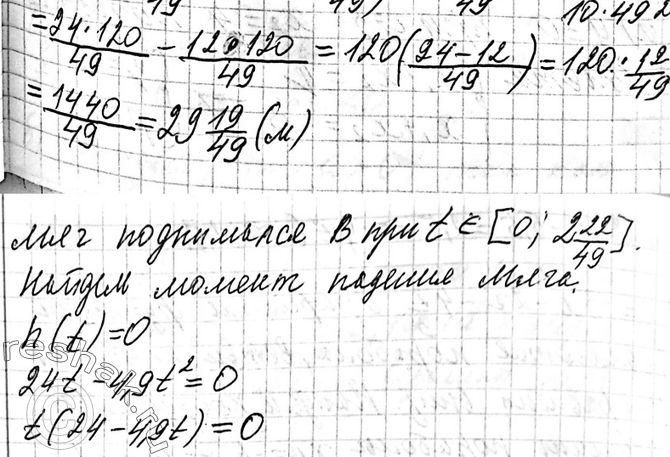 = 24·120/49 − 12·120/49 = 120(24−12/49) = 120·12/49
= 1440/49 = 29 19/49 (м)
Мяч поднимался в при t ∈ [0; 2 22/49].
Найдем момент падения мяча.
h(t)=0
24t − 4,9t² = 0
t(24 − 4,9t) = 0
reshak.ru